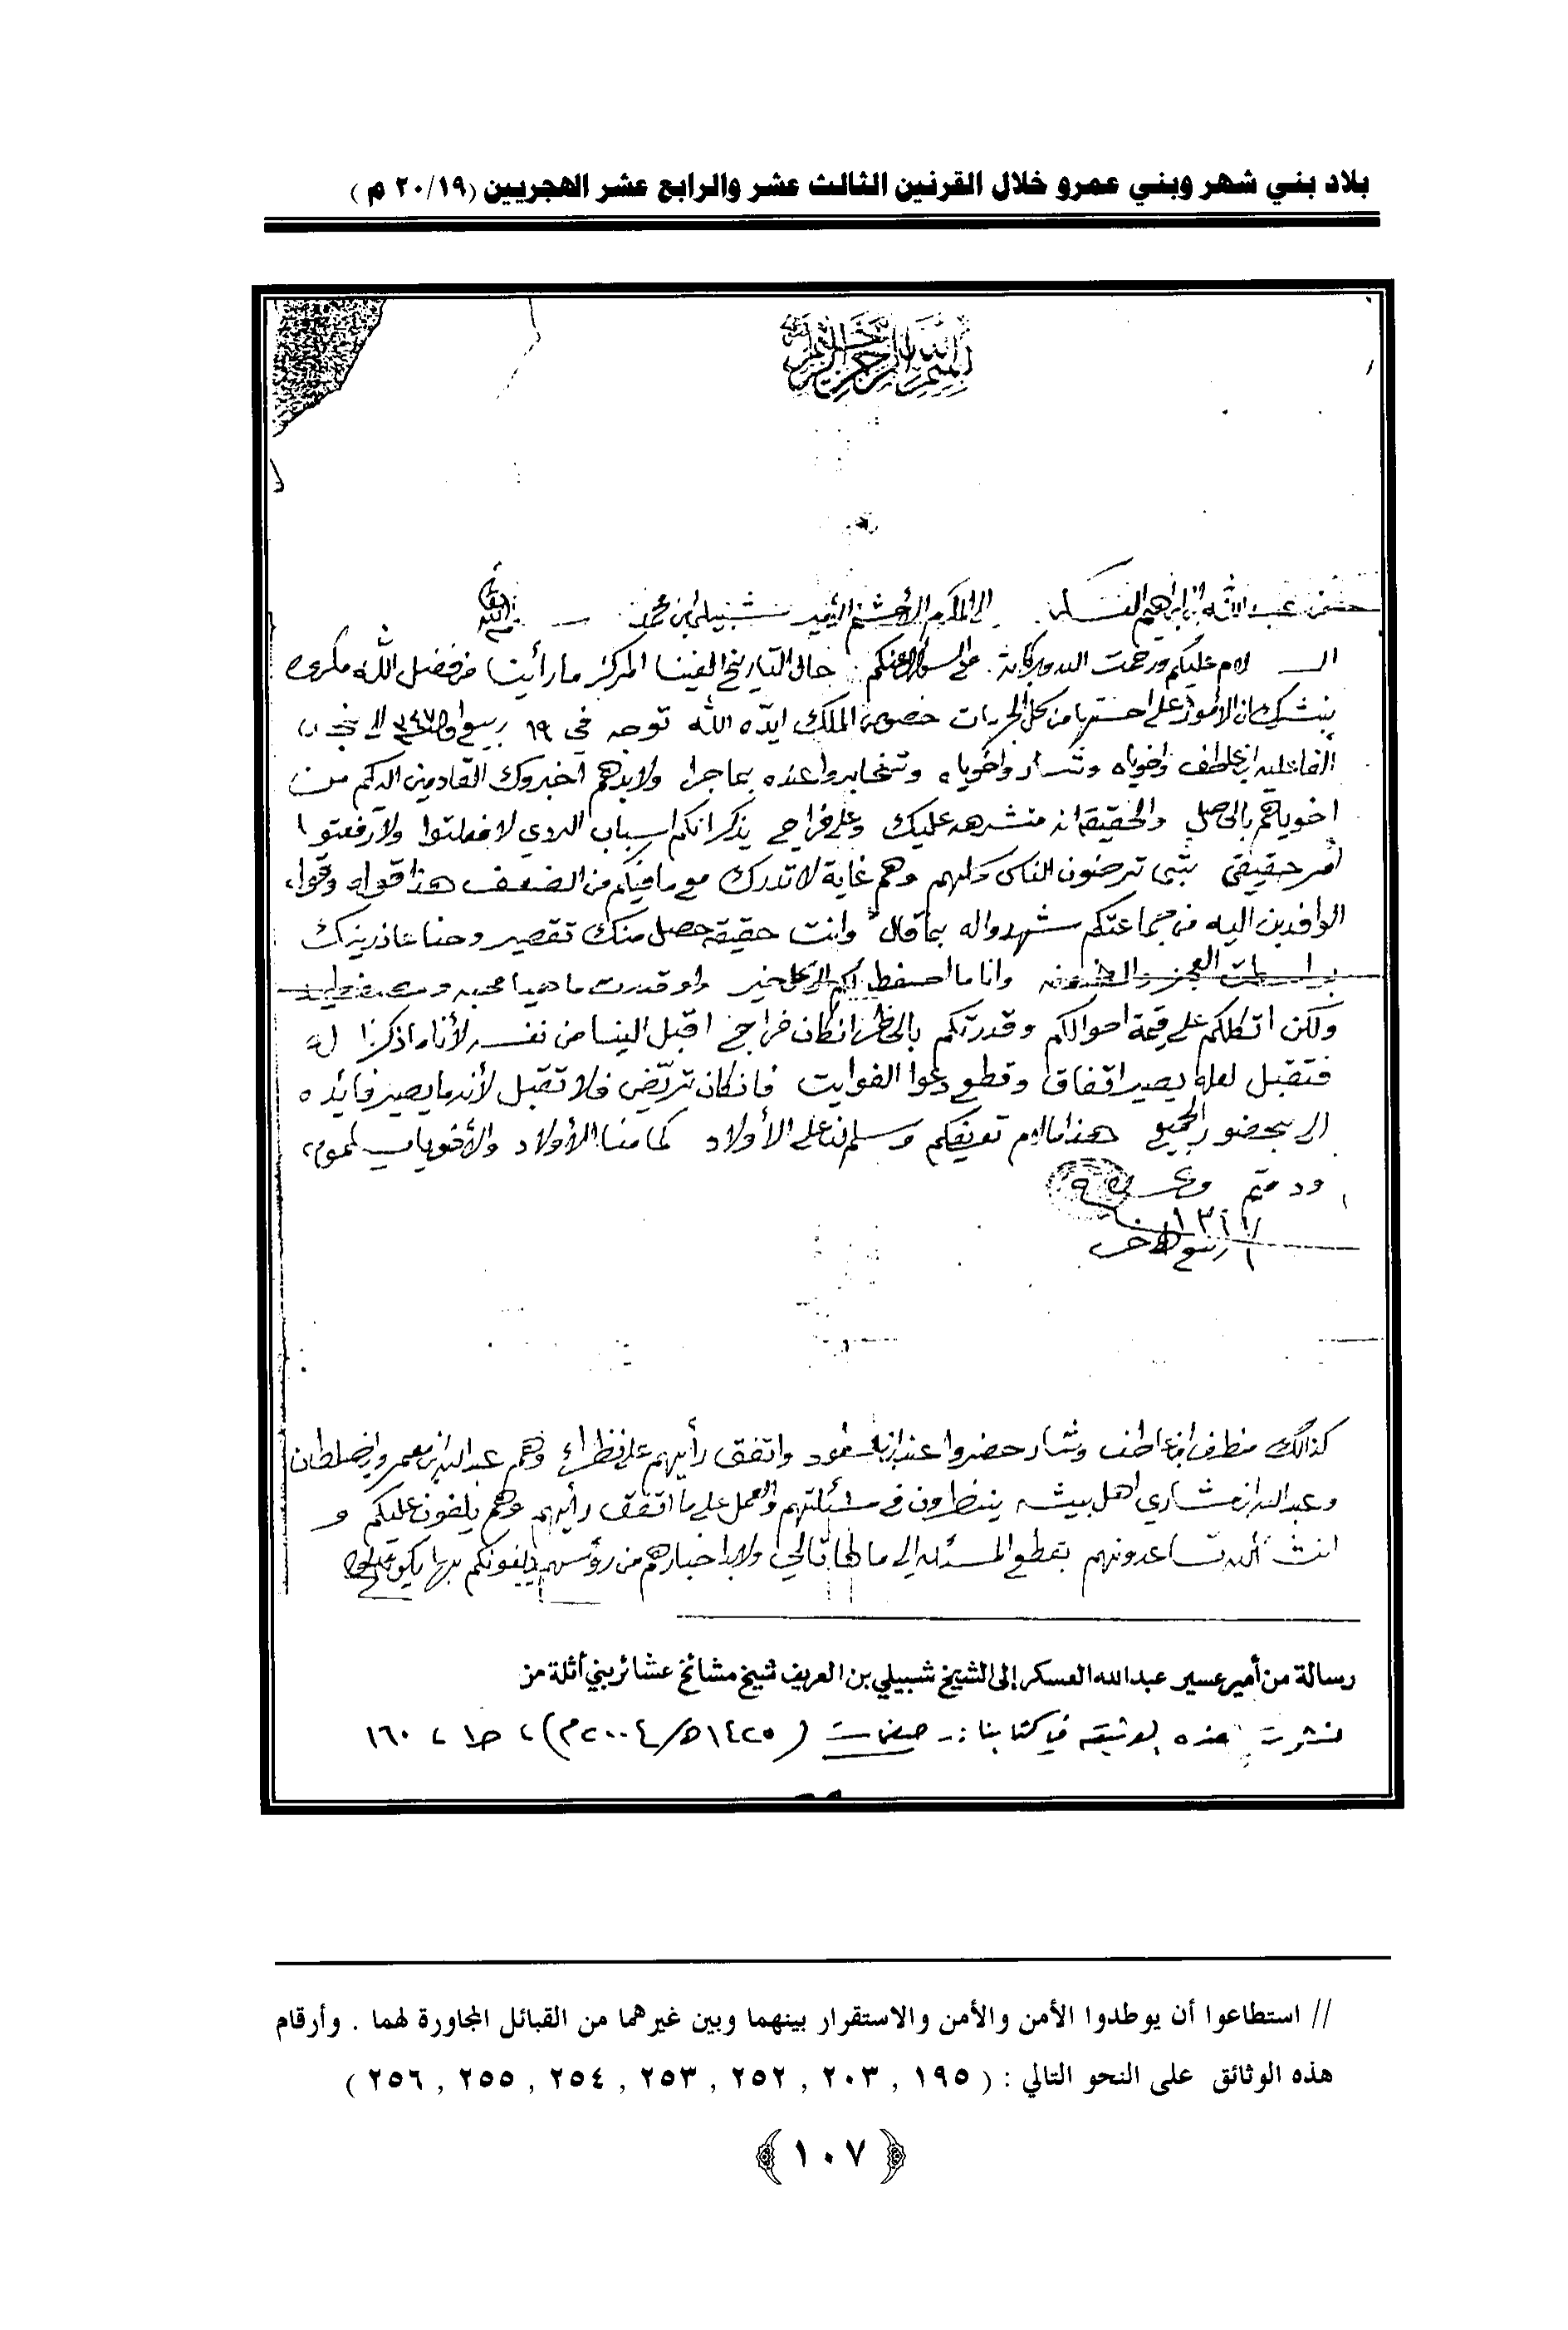 بلاد بني شهر وبني عمرو خلال القرنين الثالث عشر والرابع عشر الهجريين (٢٠/١٩ م)
بسم الله الرحمن الرحيم
من عبدالله ابن ابراهيم العسكر الى المكرم الأحشم شبيلي ابن محمد سلمه الله
الســلام عليكم ورحمت الله وبركاته على السؤال عنكم حال التاريخ الفينا المركز ما رأينا من فضل الله مكروه
نبشرك ان الأمور على احسنها من كل الجهات خصوص الملك ايده الله توجه في ١٩ ربيع
واخوياه وتخابروا عنده بما جرا ولابدهم اخبروك القادمين اليكم من
اخوياهم بالحاصل والحقيقة انه متشره عليك وعلى فراج يذكر انكم اسباب الردي لا فعلتوا ولا رفعتوا
أمر حقيقي تبي ترضون الناس كلهم وهم غاية لا تدرك مع ما فيكم من الضعف هذا قوله وقول
الوافدين اليه من جماعتكم شهدوا له بما قال وانت حقيقه حصل منك تقصير وحنا عاذرينك
وانا ما احفظ لكم الا كل خير
ولكن اتكلكم على قيمة احوالكم وقدرتكم بالخاطر ان كان فراج اقبل الينا من نفسه لأنا ما ذكرنا له
فتقبل لعله يصير اتفاق وقطع دعوا الفوايت فان كان تريض فلا تقبل لأنه ما يصير فائده
الا بحضور الجميع هذا ما لزم تعريفكم وسلم لنا على الأولاد كما منا الأولاد والأخويا يسلمون
ودمتم
ربيع اخر
كذالك واتفق رأيهم على نظراء وهم عبدالله ابن معمر
وعبدالله ابن مشاري اهل بيشه ينظرون في مسئلتهم والعمل على ما اتفق رأيهم وهم يلفون عليكم و
انشاء الله تساعدونهم بقطع المسئله الى مالها تالي ولابد اخبارهم من رؤسهم يلفونكم بها
رسالة من أمير عسير عبدالله العسكر إلى الشيخ شبيلي بن العريف شيخ مشائخ عشائر بني أثلة من
نشرت هذه الوثيقة في كتابنا : صفحات (١٤٢٥هـ/٢٠٠٤م)، ج١، ١٦٠
// استطاعوا أن يوطدوا الأمن والأمن والاستقرار بينهما وبين غيرهما من القبائل المجاورة لهما . وأرقام
هذه الوثائق على النحو التالي : ( ١٩٥ , ٢٠٣ , ٢٥٢ , ٢٥٣ , ٢٥٤ , ٢٥٥ , ٢٥٦ )
﴿ ١٠٧ ﴾